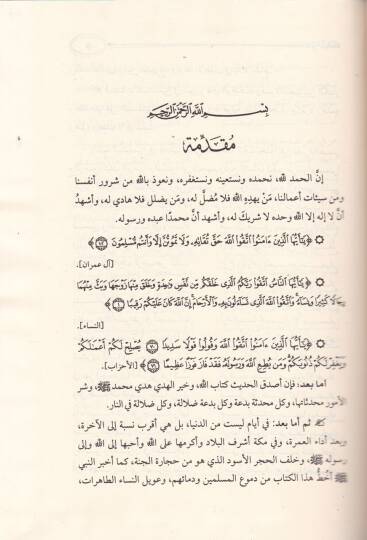 بسم الله الرحمن الرحيم
مقدمة
إنَّ الحمد لله، نحمده ونستعينه ونستغفره، ونعوذ بالله من شرور أنفسنا
ومن سيئات أعمالنا، مَن يهدِهِ الله فلا مُضلَّ له، ومَن يضلل فلا هادي له، وأشهدُ
أنَّ لا إله إلا الله وحده لا شريك له، وأشهد أنَّ محمدًا عبده ورسوله.
﴿يَٰٓأَيُّهَا ٱلَّذِينَ ءَامَنُوا۟ ٱتَّقُوا۟ ٱللَّهَ حَقَّ تُقَاتِهِۦ وَلَا تَمُوتُنَّ إِلَّا وَأَنتُم مُّسْلِمُونَ ﴿١٠٢﴾﴾
[آل عمران].
﴿يَٰٓأَيُّهَا ٱلنَّاسُ ٱتَّقُوا۟ رَبَّكُمُ ٱلَّذِى خَلَقَكُم مِّن نَّفْسٍ وَٰحِدَةٍ وَخَلَقَ مِنْهَا زَوْجَهَا وَبَثَّ مِنْهُمَا
رِجَالًا كَثِيرًا وَنِسَآءً وَٱتَّقُوا۟ ٱللَّهَ ٱلَّذِى تَسَآءَلُونَ بِهِۦ وَٱلْأَرْحَامَ إِنَّ ٱللَّهَ كَانَ عَلَيْكُمْ رَقِيبًا ﴿١﴾﴾
[النساء].
﴿يَٰٓأَيُّهَا ٱلَّذِينَ ءَامَنُوا۟ ٱتَّقُوا۟ ٱللَّهَ وَقُولُوا۟ قَوْلًا سَدِيدًا ﴿٧٠﴾ يُصْلِحْ لَكُمْ أَعْمَٰلَكُمْ
وَيَغْفِرْ لَكُمْ ذُنُوبَكُمْ وَمَن يُطِعِ ٱللَّهَ وَرَسُولَهُۥ فَقَدْ فَازَ فَوْزًا عَظِيمًا ﴿٧١﴾﴾ [الأحزاب].
أما بعد: فإن أصدق الحديث كتاب الله، وخير الهدي هدي محمد ﷺ، وشر
الأمور محدثاتها، وكل محدثة بدعة وكل بدعة ضلالة، وكل ضلالة في النار.
ثم أما بعد: في أيام ليست من الدنيا، بل هي أقرب نسبة إلى الآخرة،
وبعد أداء العمرة، وفي مكة أشرف البلاد وأكرمها على الله وأحبها إلى الله وإلى
رسوله ﷺ، وخلف الحجر الأسود الذي هو من حجارة الجنة، كما أخبر النبي
ﷺ أخطُّ هذا الكتاب من دموع المسلمين ودمائهم، وعويل النساء الطاهرات،